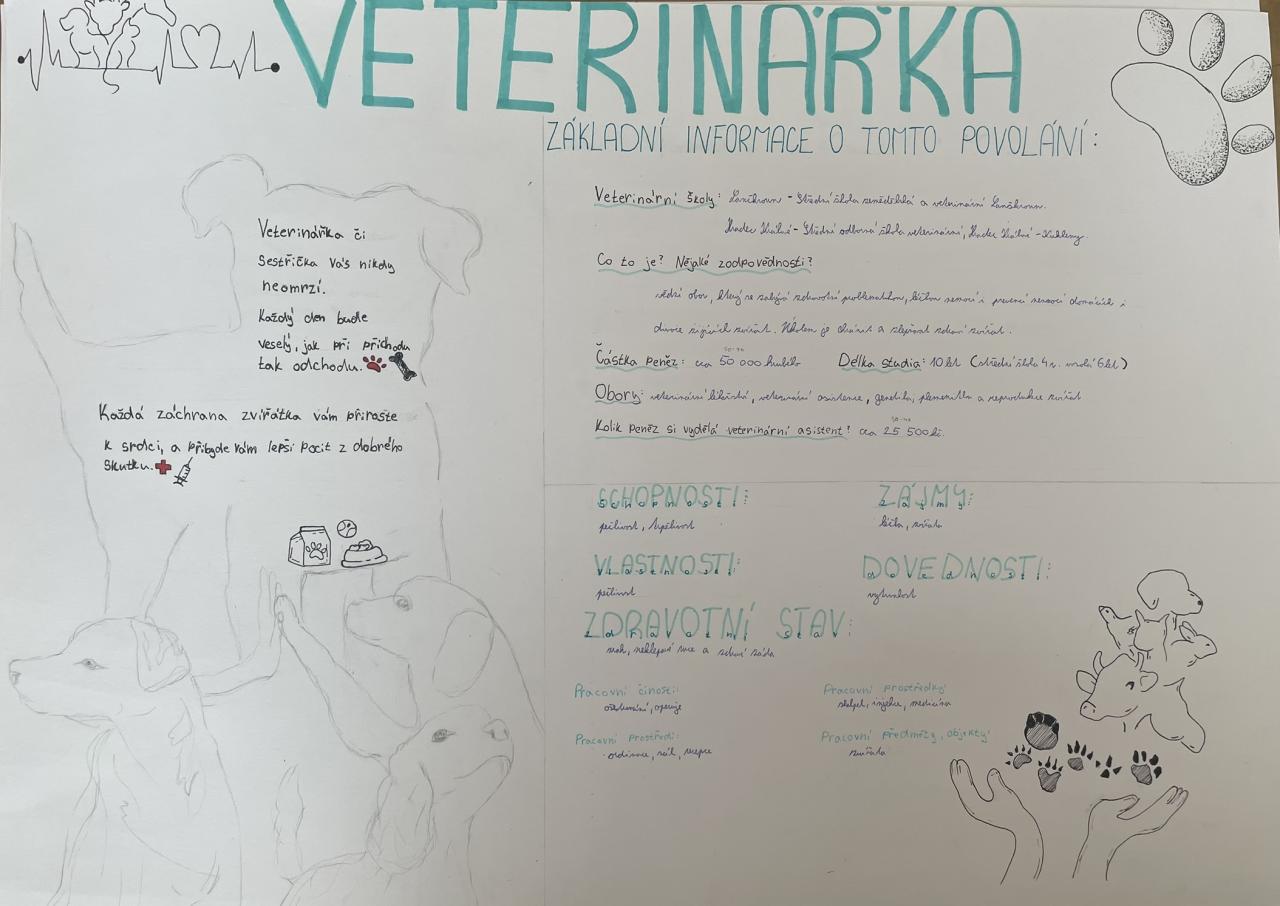 VETERINÁŘKA
ZÁKLADNÍ INFORMACE O TOMTO POVOLÁNÍ:
Veterinární školy: Lanškroun - Střední škola zemědělská a veterinární Lanškroun.
Hradec Králové - Střední odborná škola veterinární, Hradec Králové - Kukleny.
Co to je? Nějaké zodpovědnosti?
vědní obor, který se zabývá zdravotní problematikou, léčbou nemocí i prevencí nemocí domácích i
divoce žijících zvířat. Úkolem je chránit a zlepšovat zdraví zvířat.
Částka peněz: cca 50 000 hrubého Délka studia: 10 let (střední škola 4 r. vysoká 6 let)
Obory: veterinární lékařství, veterinární asistence, genetika, plemenitba a reprodukce zvířat
Kolik peněz si vydělá veterinární asistent? cca 25 500 kč.
Veterinářka či
Sestřička Vás nikdy
neomrzí.
Každý den bude
veselý, jak při příchodu
tak odchodu.
Každá záchrana zvířátka vám přiroste
k srdci, a přibyde vám lepší pocit z dobrého
skutku.
SCHOPNOSTI:
pečlivost, trpělivost
ZÁJMY:
léčba, zvířata
VLASTNOSTI:
pečlivost
DOVEDNOSTI:
vytrvalost
ZDRAVOTNÍ STAV:
zrak, neklepavé ruce a zdravá záda
Pracovní činosti:
ošetřování, operuje
Pracovní prostředky:
skalpel, injekce, medicína
Pracovní prostředí:
ordinace, sál, recepce
Pracovní předměty, objekty:
zvířata